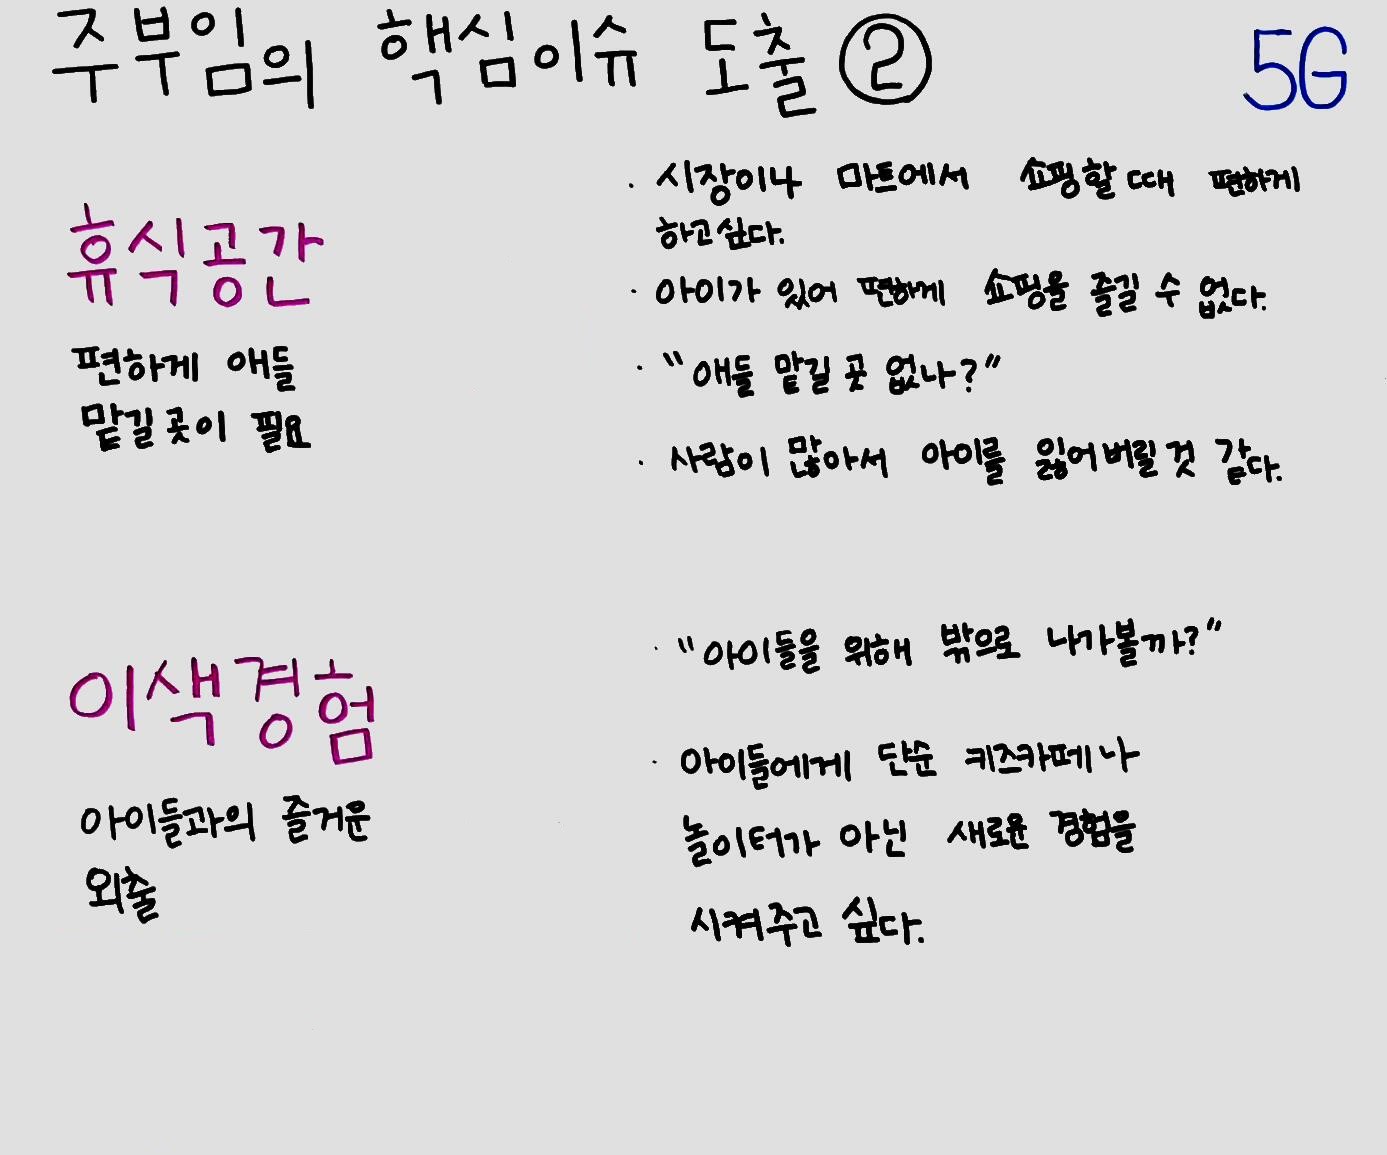 주부임의 핵심이슈 도출 ②
5G
휴식공간
편하게 애들
맡길곳이 필요
· 시장이나 마트에서 쇼핑할때 편하게
하고싶다.
· 아이가 있어 편하게 쇼핑을 즐길 수 없다.
· "애들 맡길 곳 없나?"
· 사람이 많아서 아이를 잃어버릴것 같다.
이색경험
아이들과의 즐거운
외출
· "아이들을 위해 밖으로 나가볼까?"
· 아이들에게 단순 키즈카페나
놀이터가 아닌 새로운 경험을
시켜주고 싶다.